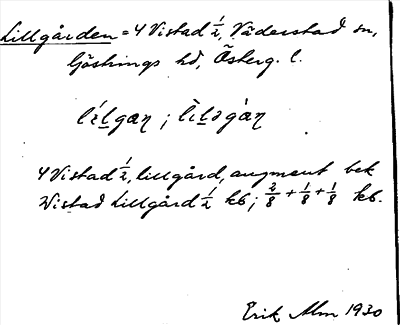 Lillgården = 4 Vistad 1/2, Väderstad sn,
Göstrings hd, Österg. l.
4 Vistad 1/2, lillgård, augment bek
Wistad Lillgård 1/2 kb; 2/8 + 1/8 + 1/8 kb.
Erik Alm 1930